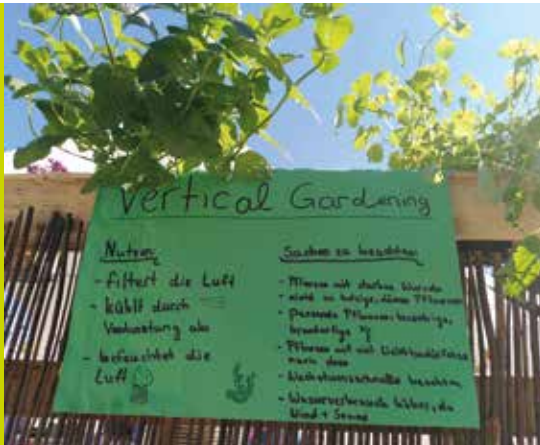 Vertical Gardening
Nutzen:
- filtert die Luft
- kühlt durch
Verdunstung ab
- befeuchtet die
Luft
Sachen zu beachten:
- Pflanzen mit starken Wurzeln
- nicht zu holzige, dünne Pflanzen
- passende Pflanzen:
- Pflanzen mit
nach
- Wachstumsschnelle beachten
- Wasserverbrauch höher, da
Wind + Sonne